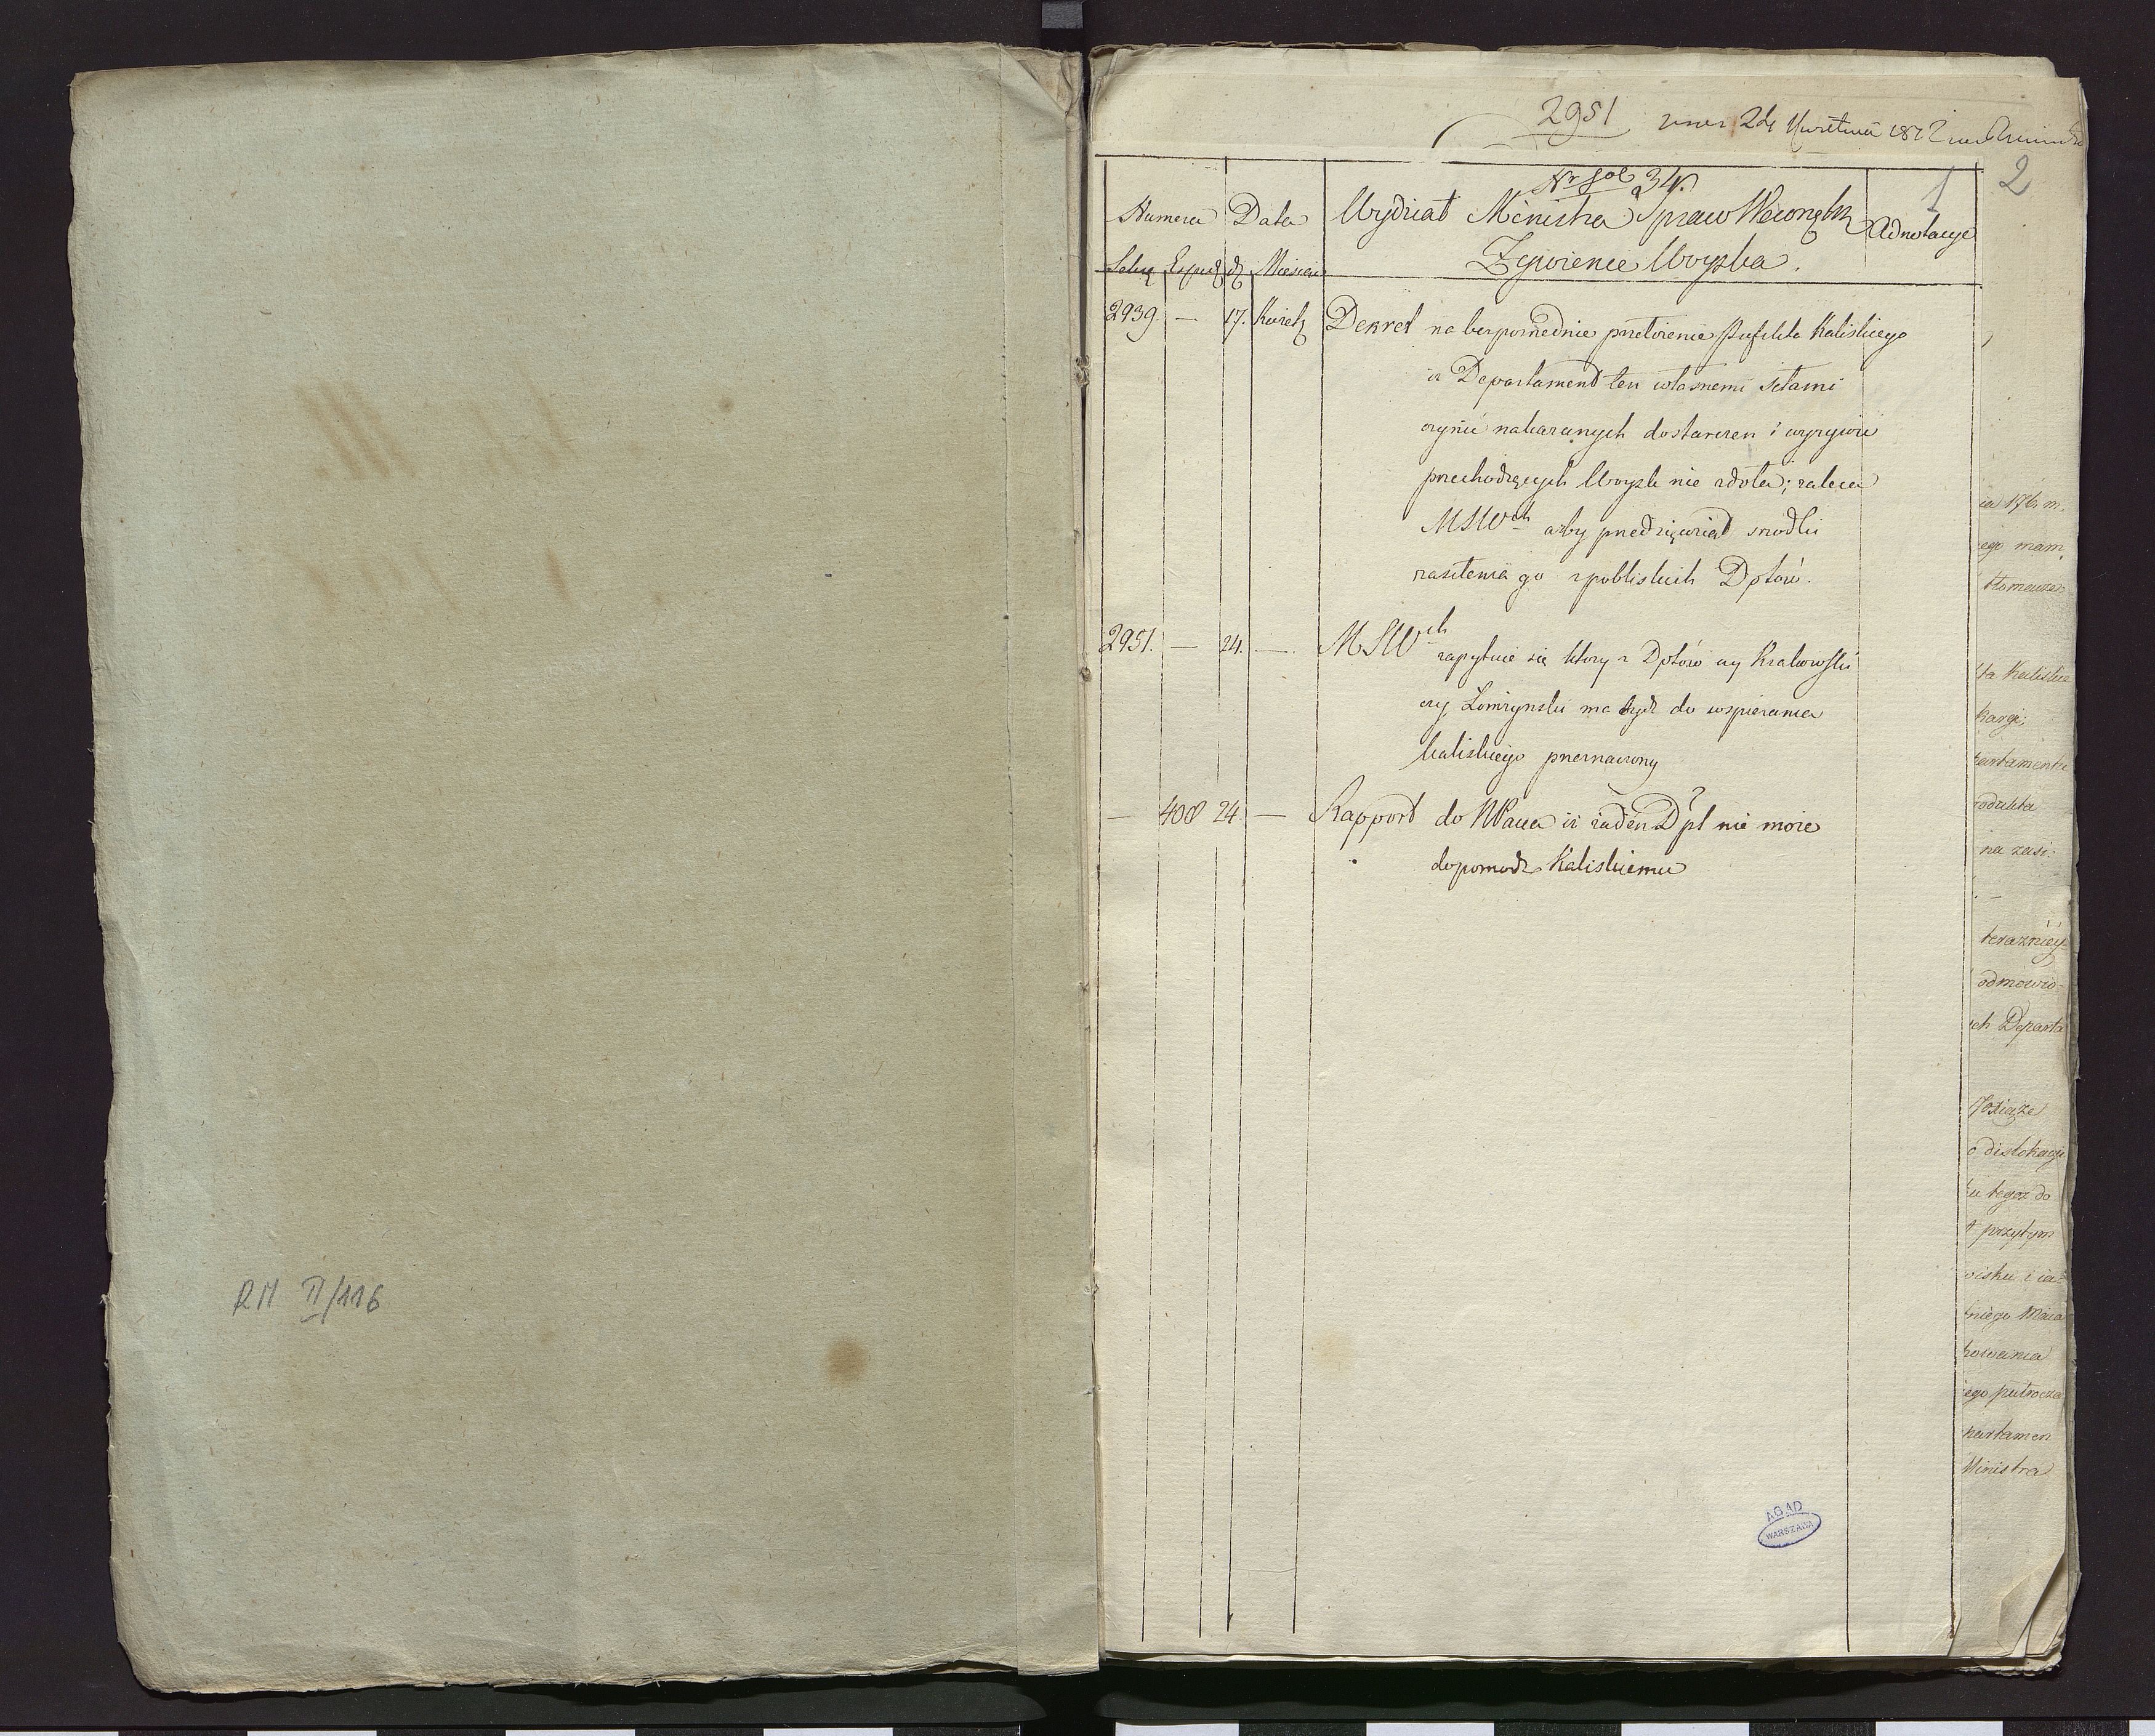 RM II/116
2951 24 Kwietnia 1812
2
1
Nr fol 34.
Numera Data Wydział Ministra Spraw Wewnętrz Adnotacye
Żywienie Woyska.
Exped d Miesiąc
2939. — 17. Kwietz Dekret na bezposrednie przełożenie Prefekta Kaliskiego
iż Departament ten własnemi siłami
czynić nakazanych dostarczeń i wyżywić
przechodzących Woysk nie zdoła; zaleca
MSWch ażby przedsięwziął srodki
zasilenia go z pobliskich Dptów.
2951. — 24. — MSWch
zapytuie się ktory z Dptów czy Krakowski
czy Łomżynski ma bydź do wspierania
kaliskiego przeznaczony
— 408 24. — Rapport do NPana iż żaden Dpt nie może
dopomodz Kaliskiemu
ego mam
tłomacze
ta Kaliskie
kargi,
partamentu
rodukta
na zasi:
terazniey
odmowio-
ch Departa
Xsiąże
o dislokacyi
tu tegoż do
przytym
oisku i ia
niego Maia
kowania
ego putrocza
partamen
Ministra
AGAD
WARSZAWA